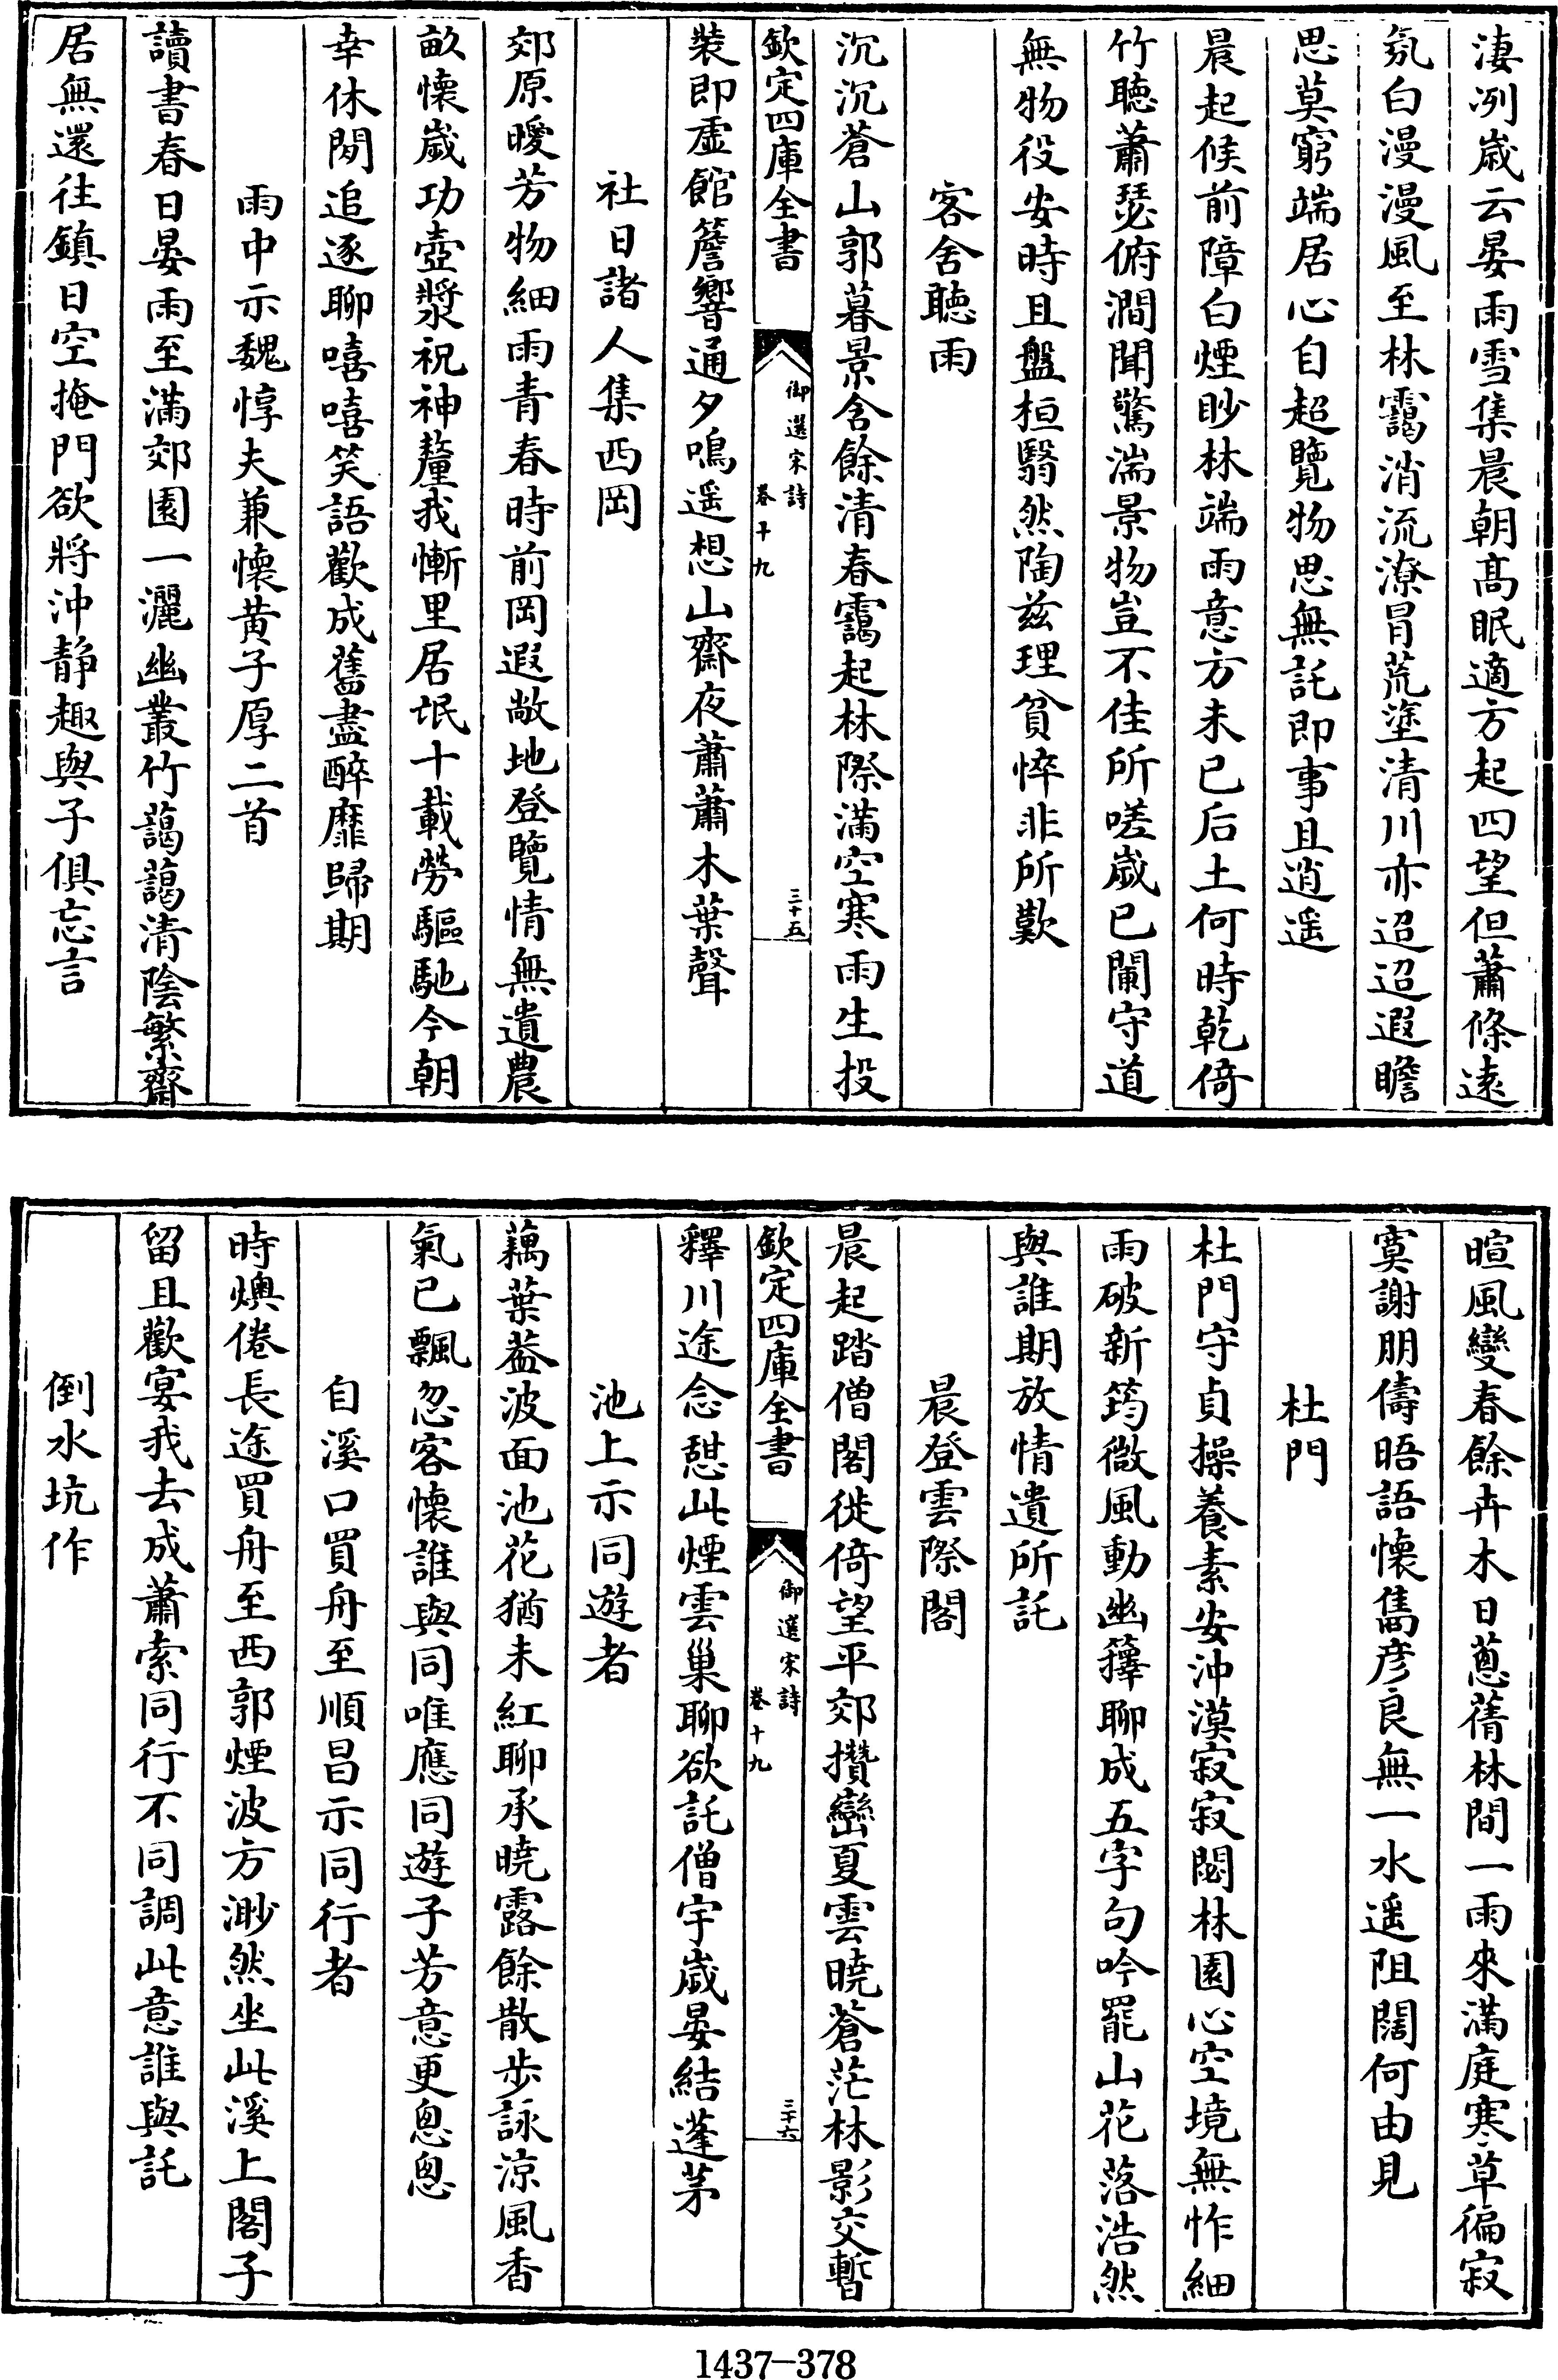 淒冽歲云晏雨雪集晨朝髙眠適方起四望但蕭條遠
氛白漫漫風至林靄消流潦冒荒塗清川亦迢迢遐瞻
思莫窮端居心自超覽物思無託即事且逍遥
晨起候前障白煙眇林端雨意方未已后土何時乾倚
竹聽蕭瑟俯澗聞驚湍景物豈不佳所嗟歲已闌守道
無物役安時且盤桓翳然陶兹理貧悴非所歎
客舍聽雨
沉沉蒼山郭暮景含餘清春靄起林際滿空寒雨生投
欽定四庫全書
御選宋詩
卷十九
三十五
裝即虚館簷響通夕鳴遥想山齋夜蕭蕭木葉聲
社日諸人集西岡
郊原曖芳物細雨青春時前岡遐敞地登覽情無遺農
畝懷歲功壺漿祝神釐我慚里居氓十載勞驅馳今朝
幸休閒追逐聊嘻嘻笑語歡成舊盡醉靡歸期
雨中示魏惇夫兼懷黄子厚二首
讀書春日晏雨至滿郊園一灑幽叢竹藹藹清陰繁齋
居無還往鎮日空掩門欲將沖靜趣與子俱忘言
暄風變春餘卉木日蔥蒨林間一雨來滿庭寒草徧寂
寞謝朋儔晤語懷雋彦良無一水遥阻闊何由見
杜門
杜門守貞操養素安沖漠寂寂閟林園心空境無怍細
雨破新筠微風動幽籜聊成五字句吟罷山花落浩然
與誰期放情遺所託
晨登雲際閣
晨起踏僧閣徙倚望平郊攢巒夏雲曉蒼茫林影交暫
欽定四庫全書
御選宋詩
卷十九
三十六
釋川途念憇此煙雲巢聊欲託僧宇歲晏結蓬茅
池上示同遊者
藕葉葢波面池花猶未紅聊承曉露餘散步詠涼風香
氣已飄忽客懷誰與同唯應同遊子芳意更悤悤
自溪口買舟至順昌示同行者
時燠倦長途買舟至西郭煙波方渺然坐此溪上閣子
留且歡宴我去成蕭索同行不同調此意誰與託
倒水坑作
1437-378